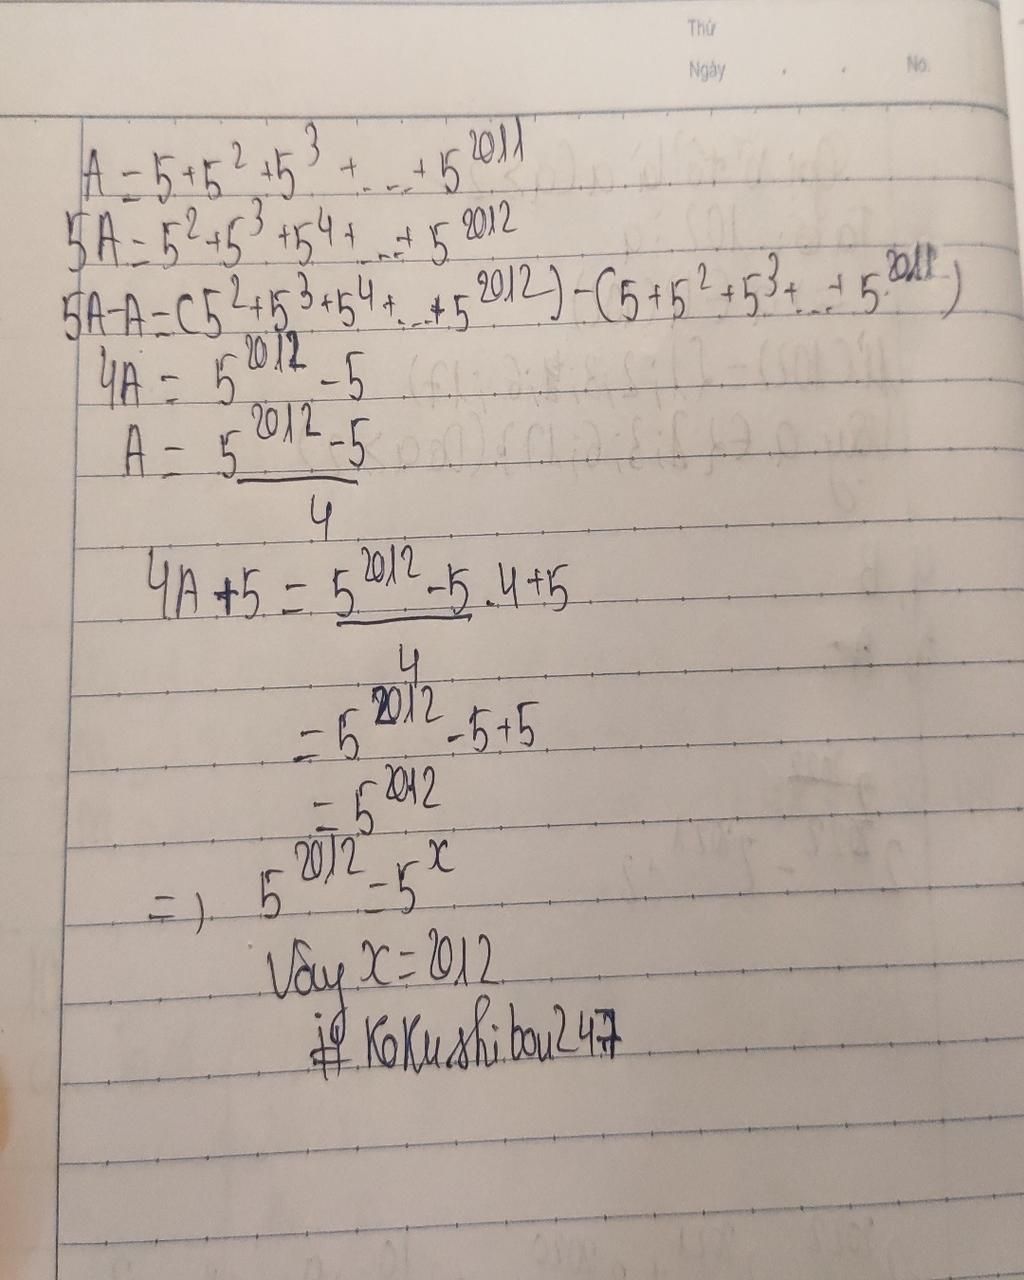 Thứ
Ngày . . No.
A = 5 + 5² + 5³ + ... + 5²⁰¹¹
5A = 5² + 5³ + 5⁴ + ... + 5²⁰¹²
5A - A = (5² + 5³ + 5⁴ + ... + 5²⁰¹²) - (5 + 5² + 5³ + ... + 5²⁰¹¹)
4A = 5²⁰¹² - 5
A = 5²⁰¹² - 5
4
4A + 5 = 5²⁰¹² - 5 . 4 + 5
4
= 5²⁰¹² - 5 + 5
= 5²⁰¹²
=) 5²⁰¹² = 5ˣ
Vậy x = 2012
# Kokushibou247